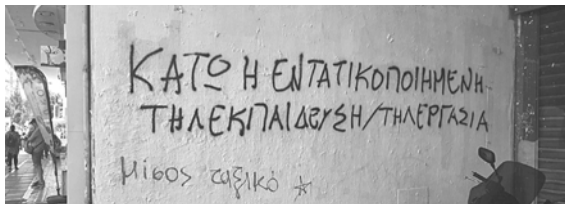 ΚΑΤΩ Η ΕΝΤΑΤΙΚΟΠΟΙΗΜΕΝΗ
ΤΗΛΕΚΠΑΙΔΕΥΣΗ/ΤΗΛΕΡΓΑΣΙΑ
Μίσος ταξικό